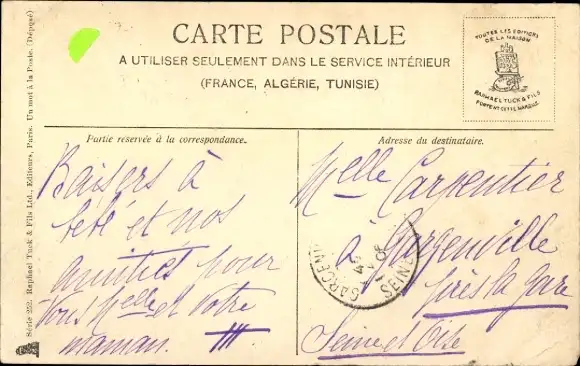 CARTE POSTALE
A UTILISER SEULEMENT DANS LE SERVICE INTÉRIEUR
(FRANCE, ALGÉRIE, TUNISIE)
TOUTES LES EDITIONS
DE LA MAISON
RAPHAEL TUCK & FILS
PORTENT CETTE MARQUE
Série 222. Raphael Tuck & Fils Ltd., Editeurs, Paris. Un mot à la Poste. (Déposé)
Partie reservée à la correspondance.
Baisers à
bébé et nos
amitiés pour
Vous Melle et Votre
maman.
Adresse du destinataire.
Melle Carpentier
à Gargenville
près la gare
Seine et Oise
GARGENV
SEINE